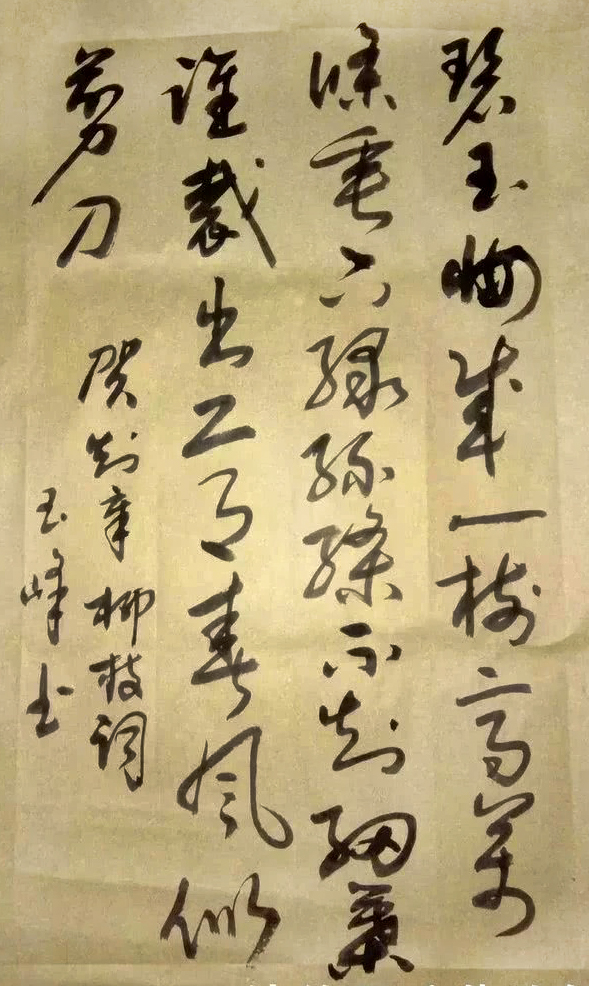 碧玉妝成一樹高萬
條垂下綠絲絛不知細葉
誰裁出二月春風似
剪刀
賀知章柳枝詞
玉峰书